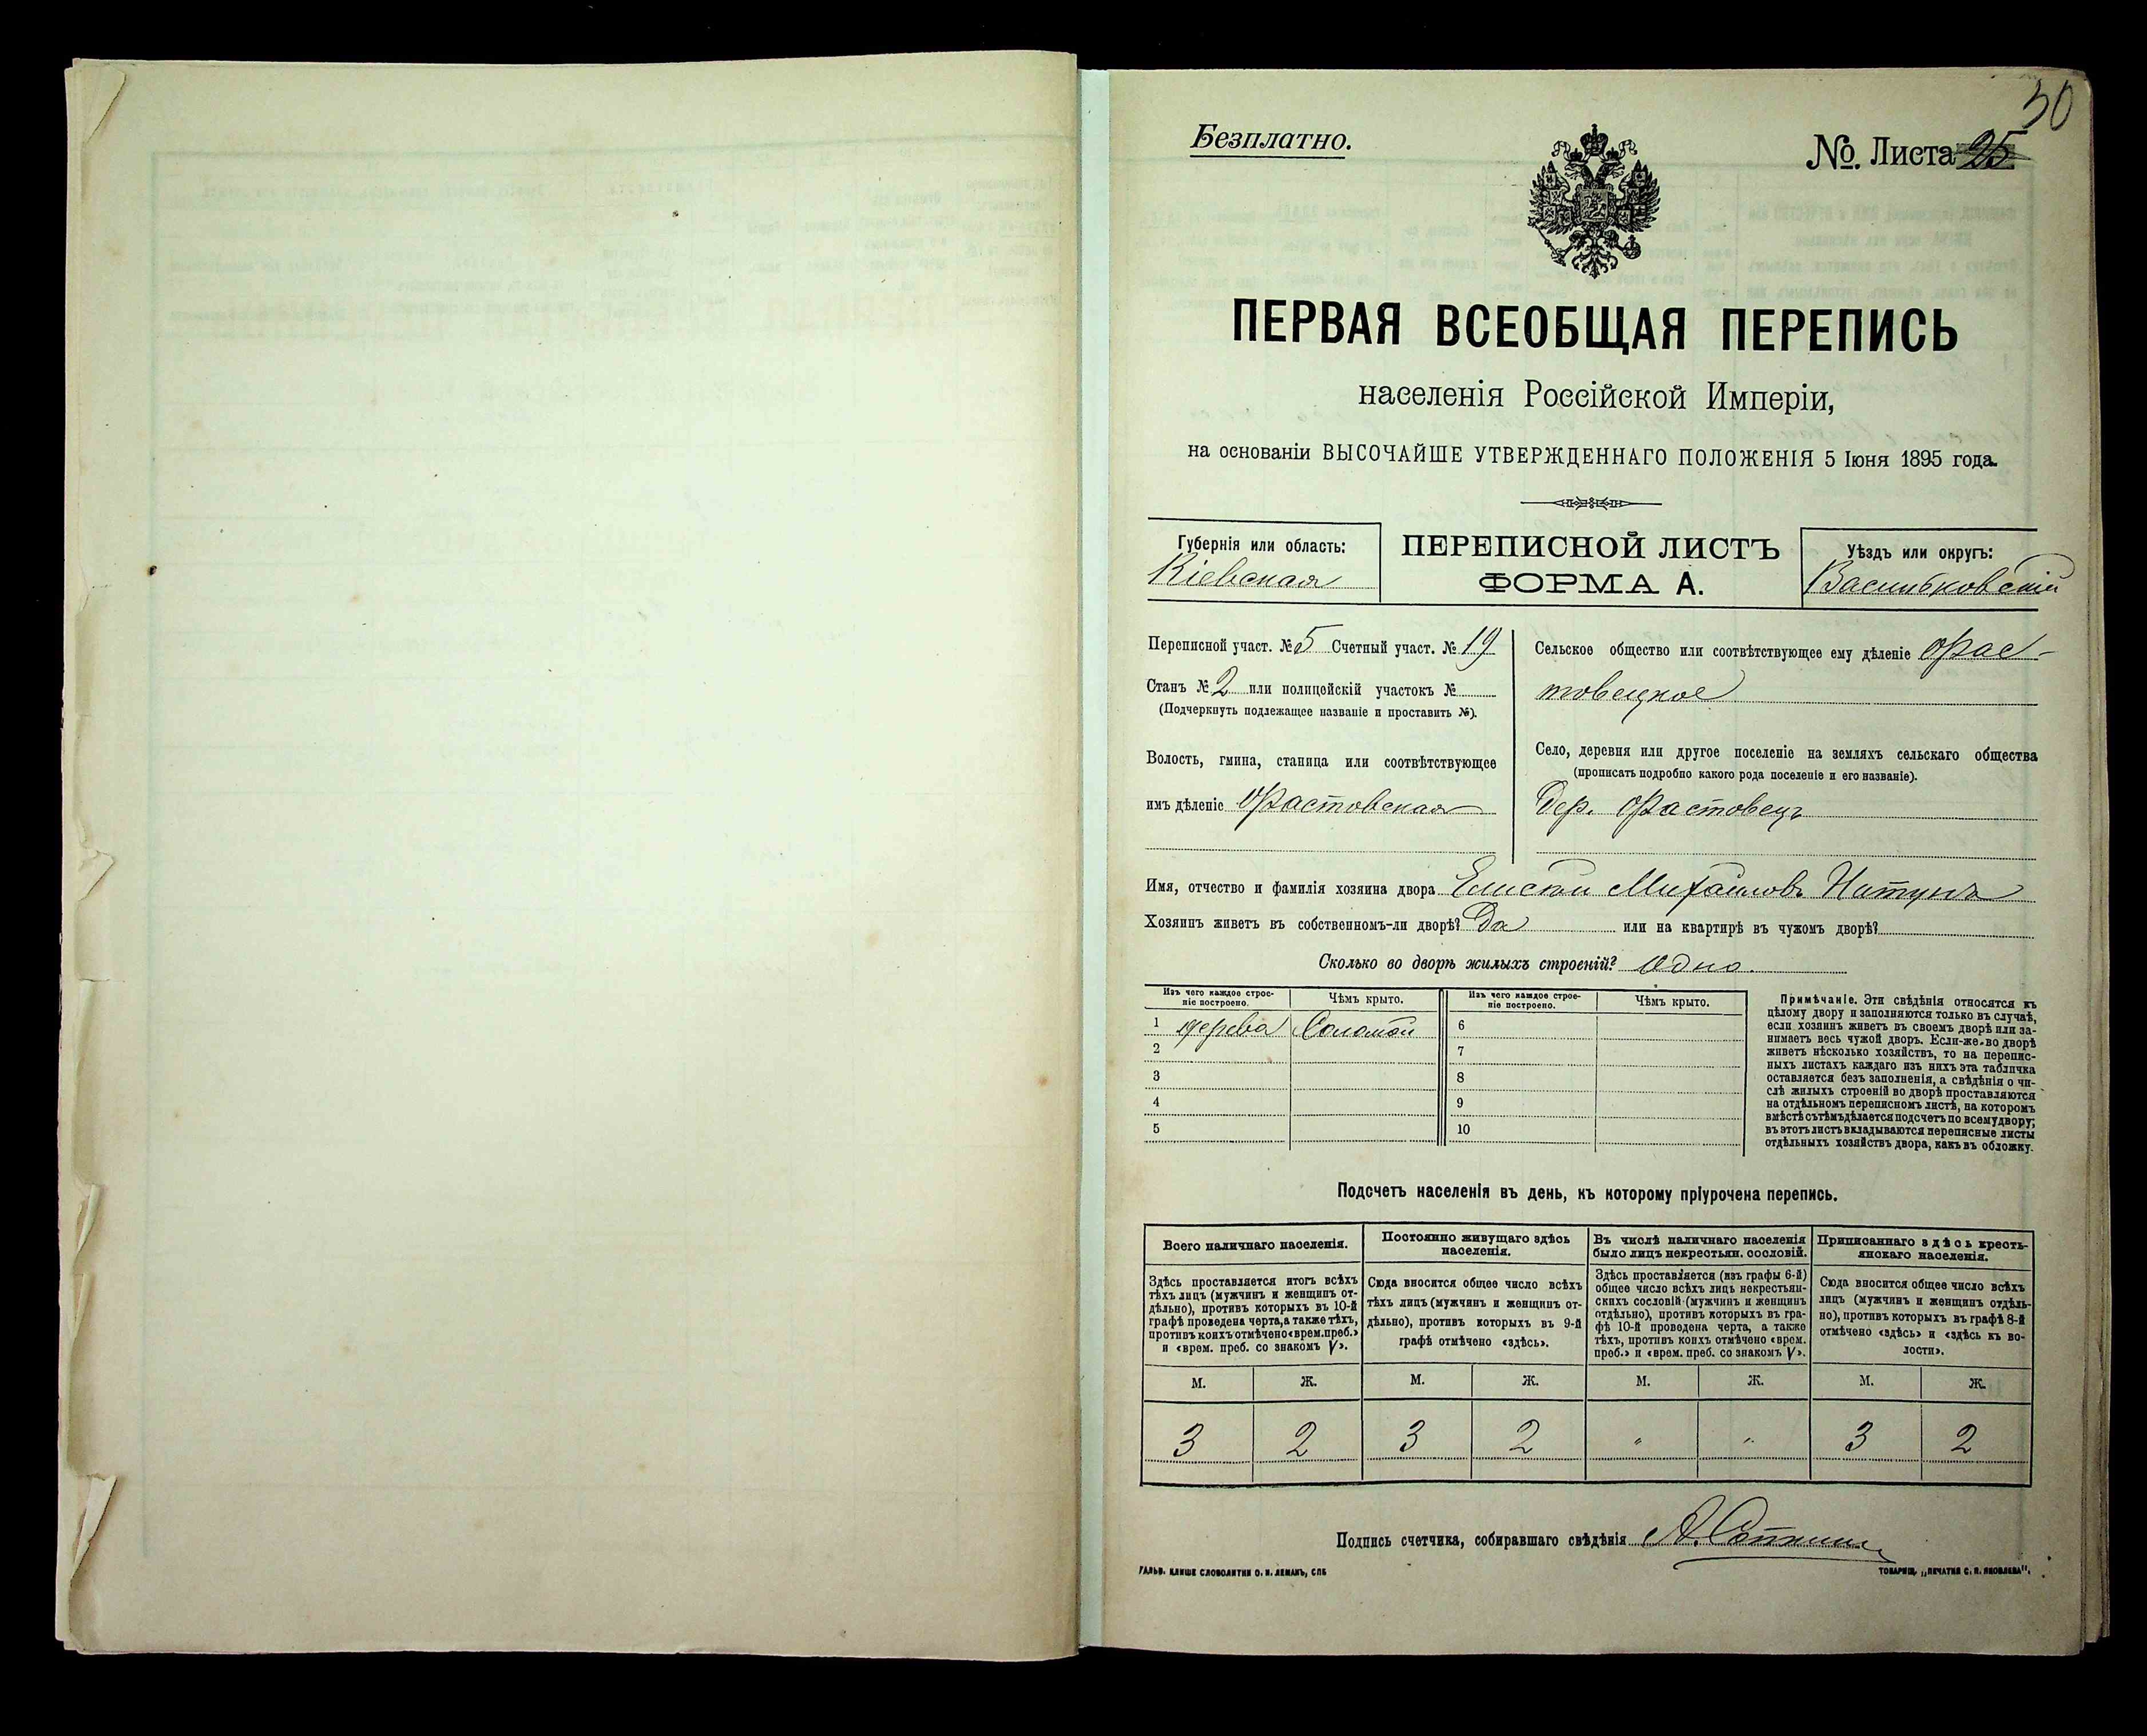 50
Безплатно.
№. Листа 25
ПЕРВАЯ ВСЕОБЩАЯ ПЕРЕПИСЬ
населенія Россійской Имперіи,
на основаніи ВЫСОЧАЙШЕ УТВЕРЖДЕННАГО ПОЛОЖЕНІЯ 5 Іюня 1895 года.
Губернія или область:
Кіевская
ПЕРЕПИСНОЙ ЛИСТЪ
ФОРМА А.
Уѣздъ или округъ:
Васильковскій
Переписной участ. № 5 Счетный участ. № 19
Станъ № 2 или полицейскій участокъ №
(Подчеркнуть подлежащее названіе и проставить №).
Волость, гмина, станица или соотвѣтствующее
имъ дѣленіе Фастовская
Сельское общество или соотвѣтствующее ему дѣленіе Фас-
товецкое
Село, деревня или другое поселеніе на земляхъ сельскаго общества
(прописать подробно какого рода поселеніе и его названіе).
Дер. Фастовецъ
Имя, отчество и фамилія хозяина двора Михайловъ
Хозяинъ живетъ въ собственномъ-ли дворѣ? Да или на квартирѣ въ чужомъ дворѣ?
Сколько во дворѣ жилыхъ строеній? Одно.
Изъ чего каждое строе-
ніе построено.
Чѣмъ крыто.
Изъ чего каждое строе-
ніе построено.
Чѣмъ крыто.
1 дерева Соломой 6
2 7
3 8
4 9
5 10
Примѣчаніе. Эти свѣдѣнія относятся къ
цѣлому двору и заполняются только въ случаѣ,
если хозяинъ живетъ въ своемъ дворѣ или за-
нимаетъ весь чужой дворъ. Если-же во дворѣ
живетъ нѣсколько хозяйствъ, то на перепис-
ныхъ листахъ каждаго изъ нихъ эта табличка
оставляется безъ заполненія, а свѣдѣнія о чи-
слѣ жилыхъ строеній во дворѣ проставляются
на отдѣльномъ переписномъ листѣ, на которомъ
вмѣстѣ съ тѣмъ дѣлается подсчетъ по всему двору;
въ этотъ листъ вкладываются переписные листы
отдѣльныхъ хозяйствъ двора, какъ въ обложку.
Подсчетъ населенія въ день, къ которому пріурочена перепись.
Всего наличнаго населенія.
Здѣсь проставляется итогъ всѣхъ
тѣхъ лицъ (мужчинъ и женщинъ от-
дѣльно), противъ которыхъ въ 10-й
графѣ проведена черта, а также тѣхъ,
противъ коихъ отмѣчено «врем. преб.»
и «врем. преб. со знакомъ V».
Постоянно живущаго здѣсь
населенія.
Сюда вносится общее число всѣхъ
тѣхъ лицъ (мужчинъ и женщинъ от-
дѣльно), противъ которыхъ въ 9-й
графѣ отмѣчено «здѣсь».
Въ числѣ наличнаго населенія
было лицъ некрестьян. сословій.
Здѣсь проставляется (изъ графы 6-й)
общее число всѣхъ лицъ некрестьян-
скихъ сословій (мужчинъ и женщинъ
отдѣльно), противъ которыхъ въ гра-
фѣ 10-й проведена черта, а также
тѣхъ, противъ коихъ отмѣчено «врем.
преб.» и «врем. преб. со знакомъ V».
Приписаннаго здѣсь кресть-
янскаго населенія.
Сюда вносится общее число всѣхъ
лицъ (мужчинъ и женщинъ отдѣль-
но), противъ которыхъ въ графѣ 8-й
отмѣчено «здѣсь» и «здѣсь къ во-
лости».
М. Ж. М. Ж. М. Ж. М. Ж.
3 2 3 2 " " 3 2
Подпись счетчика, собиравшаго свѣдѣнія
ГАЛЬВ. КЛИШЕ СЛОВОЛИТНИ О. И. ЛЕМАНЪ, СПБ
ТОВАРИЩ. „ПЕЧАТНЯ С. П. ЯКОВЛЕВА".